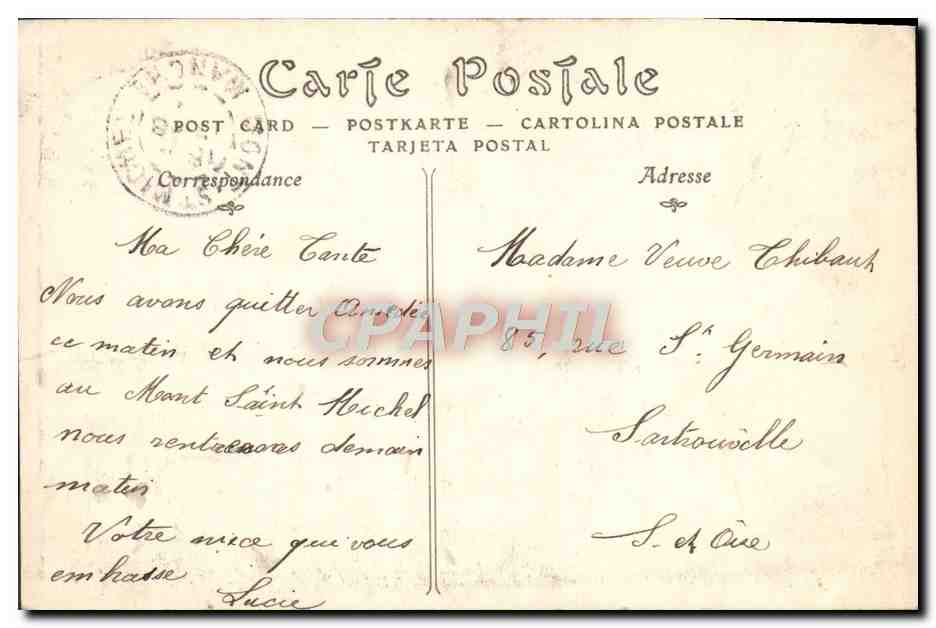 Carte Postale
POST CARD — POSTKARTE — CARTOLINA POSTALE
TARJETA POSTAL
Correspondance
MONT ST MICHEL
MANCHE
Ma Chère Tante
Nous avons quitter Amédée
ce matin et nous sommes
au Mont Saint Michel
nous rentrerons demain
matin
Votre nièce qui vous
embrasse
Lucie
Adresse
Madame Veuve Thibault
85, rue St Germain
Sartrouville
S. et Oise
CPAPHIL